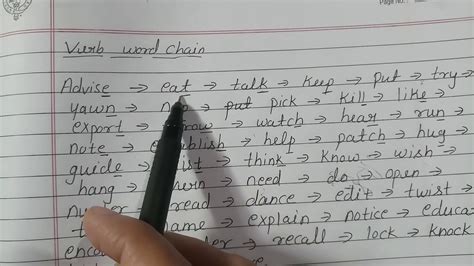 Page No.:
Verb word chain
Advise → eat → talk → keep → put → try →
yawn → → put pick → kill → like →
export → → watch → hear → run →
note → → help → patch → hug →
guide → → think → know → wish →
hang → → need → do → open →
→ read → dance → edit → twist →
→ → explain → notice → educa
→ → recall → lock → knock